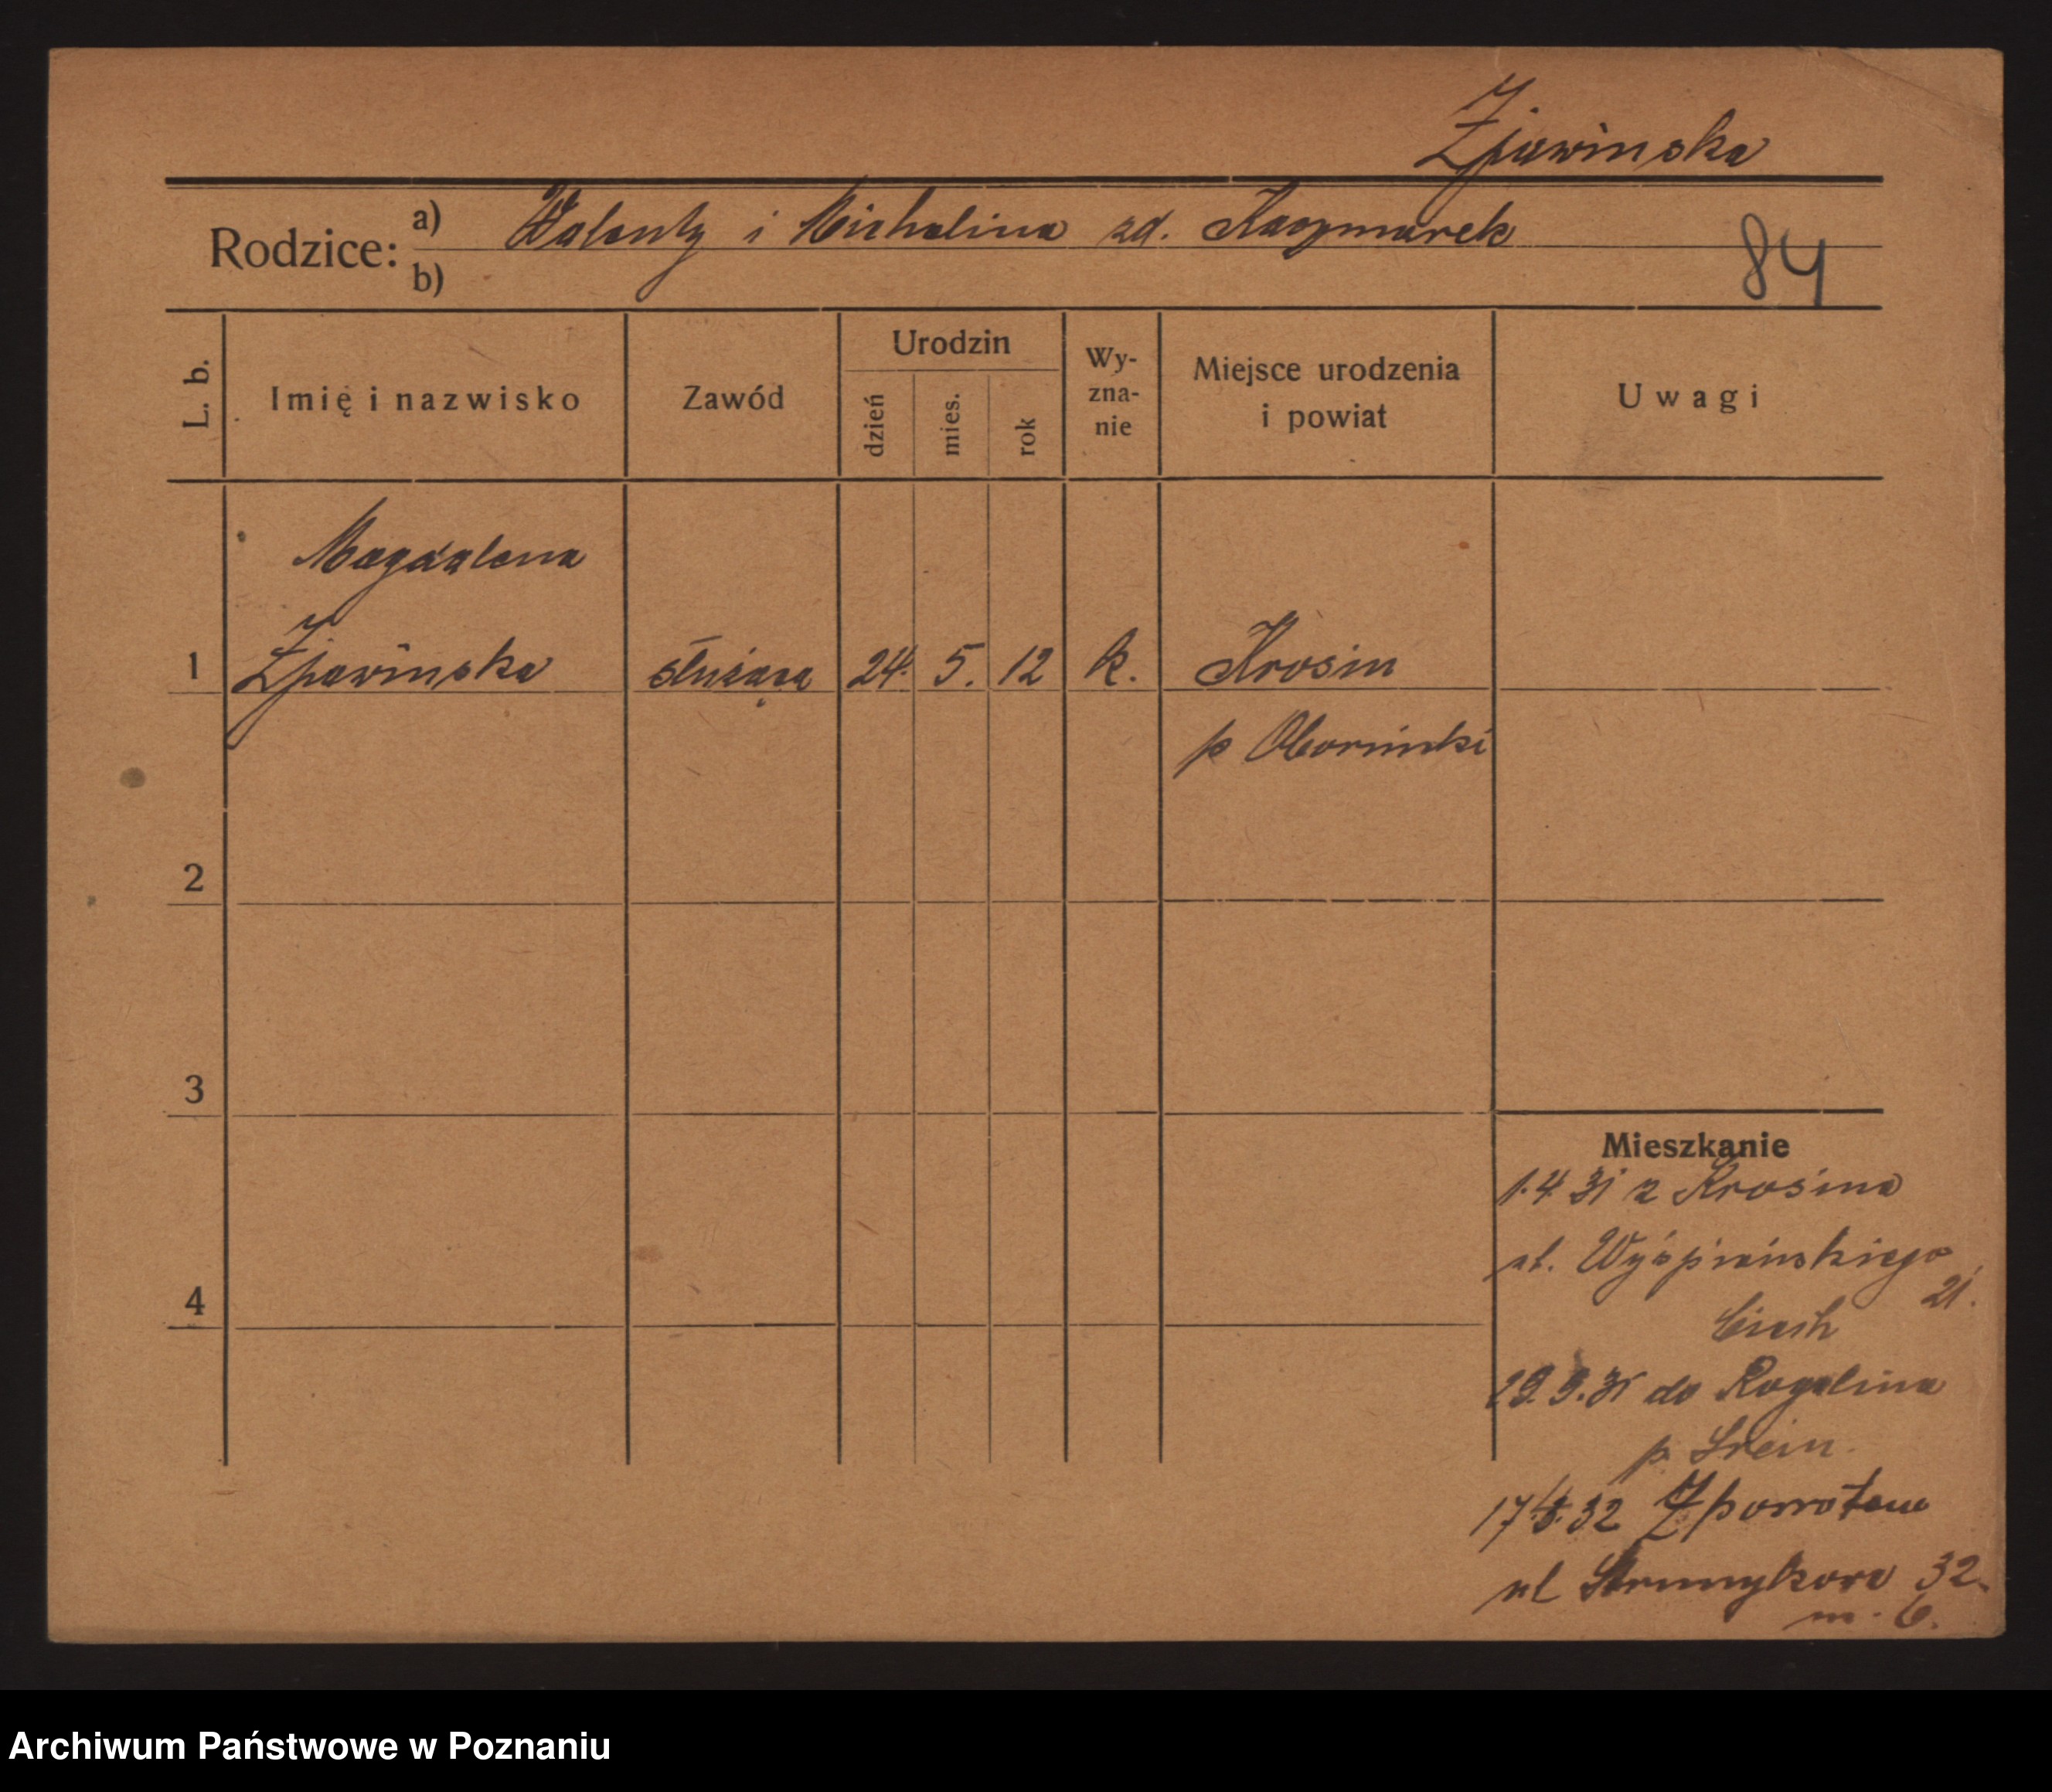 Zjawinska
Rodzice: a) Walenty i Michalina zd. Kaczmarek
b)
84
L. b. Imię i nazwisko Zawód Urodzin dzień mies. rok Wyznanie Miejsce urodzenia i powiat Uwagi
Magdalena
1 Zjawinska służąca 24. 5. 12 k. Krosin
p Obornicki
2
3
4
Mieszkanie
1.4 31 z Krosina
ul. Wyśpiańskiego
21.
29.9.31 do Rogalina
p. Srem.
32 Z powrotem
ul 32.
m. 6.
Archiwum Państwowe w Poznaniu